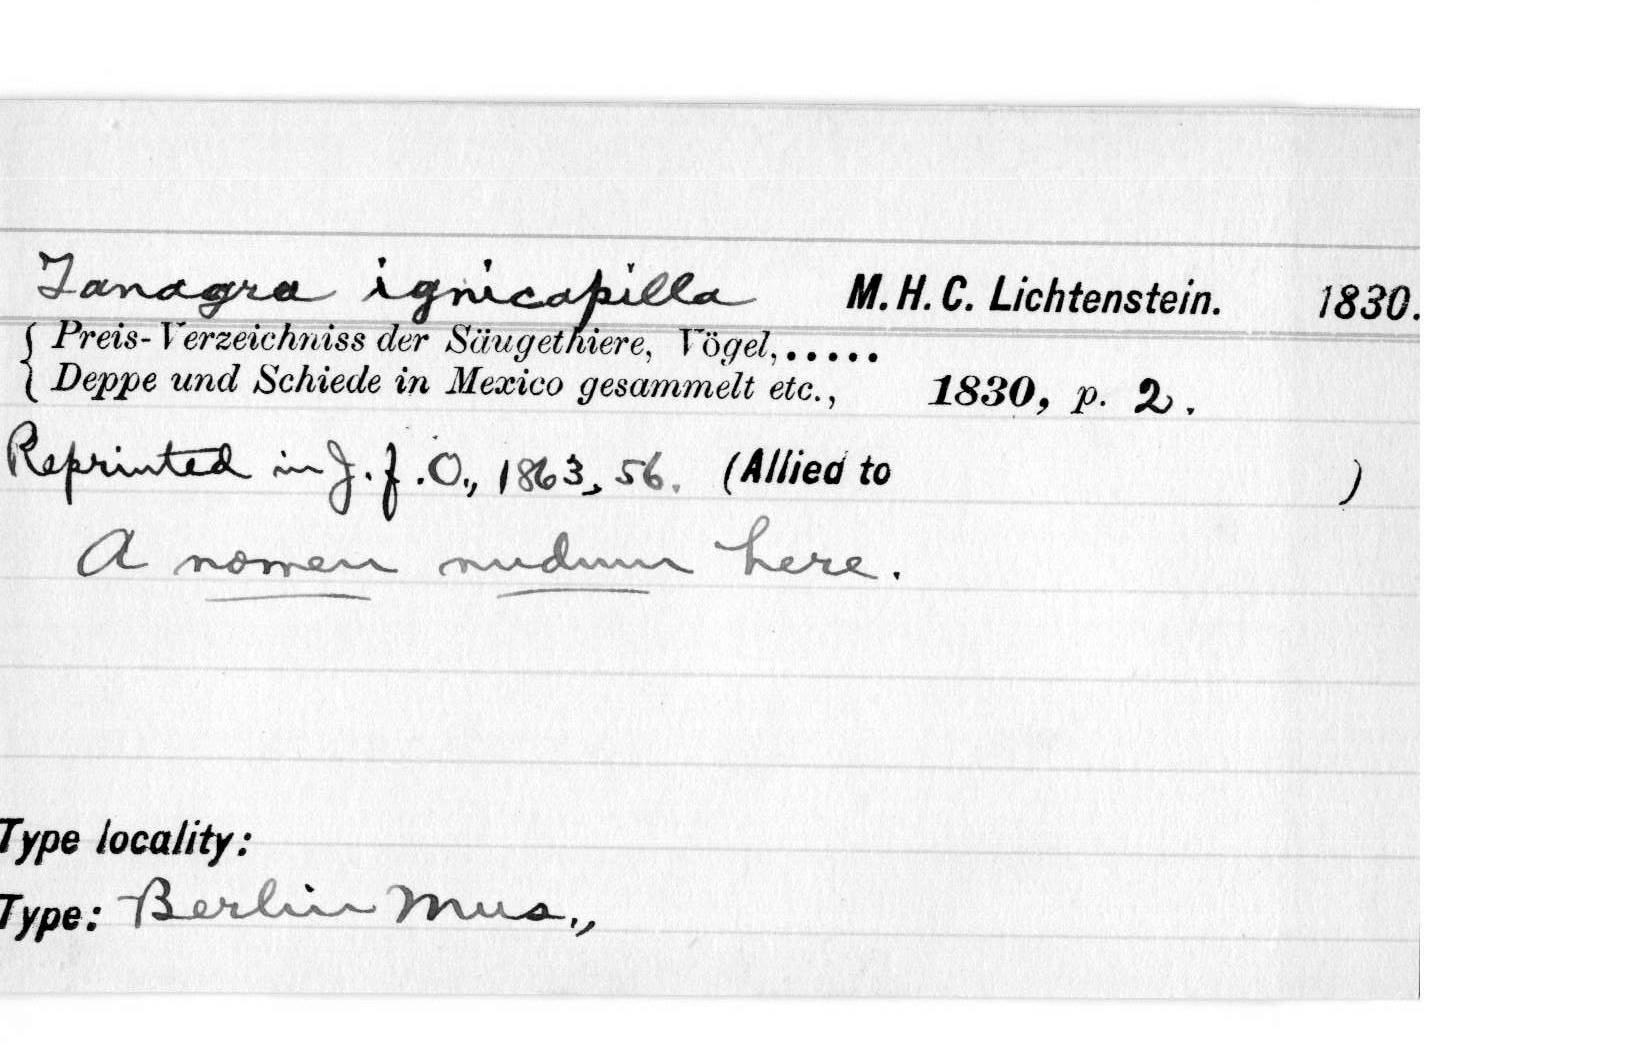 Tanagra ignicapilla M. H. C. Lichtenstein. 1830.
{ Preis-Verzeichniss der Säugethiere, Vögel,.....
{ Deppe und Schiede in Mexico gesammelt etc., 1830, p. 2.
Reprinted in J. f. O., 1863, 56. (Allied to )
A nomen nudum here.
Type locality:
Type: Berlin Mus.,